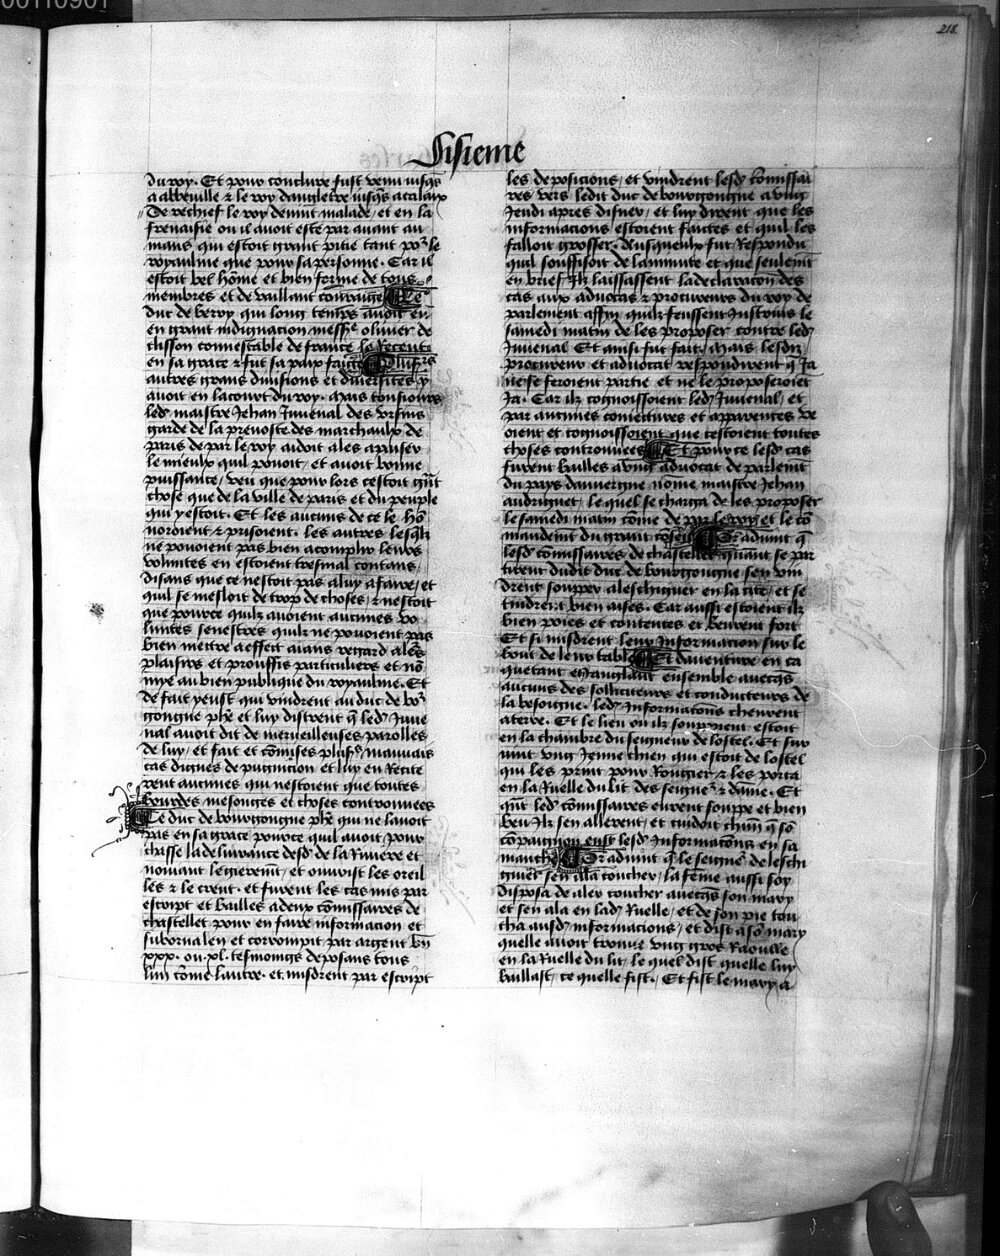 218.
Sisieme
du roy. Et pour conclure fust venu iusqs
a abbeuille & le roy dangleterre iusqs a calaix
De rechief le roy deuint malade / et en la
frenaisie ou il auoit este par auant au
mans qui estoit grant pitie tant por le
royaulme que pour sa personne. Car il
estoit bel hōme et bien forme de tous
membres et de vaillant courraige Le
duc de berry qui long temps auoit eu
en grant indignacion messre oliuier de
clisson connestable de france le Receut
en sa grace & fut sa paix faicte Plusrs
autres grans diuisions et diuersites y
auoit en la court du roy. Mais tousiours
led maistre Jehan Juuenal des vrsins
garde de la preuoste des marchaulx de
paris de par le roy aidoit a les apaiser
le mieulx quil pouoit / et auoit bonne
puissance / veu que pour lors cestoit grāt
chose que de la ville de paris et du peuple
qui y estoit. Et les aucuns de ce le hō
noroient & prisoient. les autres lesqlz
ne pouoient pas bien acomplir leurs
volentes en estoient tresmal contans /
disans que ce nestoit pas a luy a faire / et
quil se mesloit de trop de choses / & nestoit
que pource quilz auoient aucunes vo
lentes senestres quilz ne pouoient pas
bien mectre a effect aians regard a les
plaisirs et prouffis particuliers et nō
mye au bien publique du royaulme. Et
de fait yeust qui vindrent au duc de bor
gongne phe et luy distrent q led Juue
nal auoit dit de merueilleuses parolles
de luy / et fait et cōmises plusrs mauuais
cas dignes de pugnicion et luy en Recite
rent aucunes qui nestoient que toutes
bourdes mesonges et choses controuuees
Le duc de bourgongne phe qui ne lauoit
pas en sa grace pource quil auoit pour
chasse la deliurance desd de la Riuiere et
nouiant legierement / et ouurist les oreil
les & le creut. et furent les cas mis par
escript et bailles a deux cōmissaires de
chastellet pour en faire informacion et
subornalen et corrompit par argent bn
xxx. ou .xl. tesmoings deposans tous
lun cōme lautre. et misdrent par escript
les deposicions / et vindrent lesd cōmissai
res vers ledit duc de bourgongne a vng
Jeudi apres disner / et luy dirent que les
informacions estoient faictes et quil les
falloit grosser. Ausquieulx fut Respondu
quil souffisoit de la minute et que seulemt
en brief Ilz laissassent la declaracon des
cas aux aduocas & procureurs du roy de
parlement affin quilz feussent Instruis le
samedi matin de les proposer contre led
Juuenal Et ainsi fut fait. Mais lesdiz
procureur et aduocat respondirent q Ja
ne se feroient partie et ne le proposeroiēt
Ja. Car ilz cognoissoient led Juuenal / et
par aucunes coniectures et apparences ve
oient et cognoissoient que cestoient toutes
choses controuuees Et pource lesd cas
furent bailles a vng aduocat de parlemt
du pays dauuergne nōme maistre Jehan
andriguet / le quel se charga de les proposer
le samedi matin cōme de par le roy et le cō
mandemt du grant cōseil Or aduint q
lesd cōmissaires de chastellet quant se par
tirent dudit duc de bourgongne sen vin
drent soupper a leschiquier en la cite / et se
tindrent bien aises. Car aussi estoient ilz
bien paies et contentes et beurent fort
Et si misdrent leur Informacion sur le
bout de leur table Et dauenture en ca
quetant et janglant ensemble auecqs
aucuns des sollicitieurs et conducteurs de
la besoigne. led Informacons cheurent
a terre. Et le lieu ou ilz souppoient estoit
en la chambre du seigneur de lostel. Et sur
uint vng Jeune chien qui estoit de lostel
qui les print pour Rongier & les porta
en la Ruelle du lit des seignr & dame. Et
qūt led cōmissaires eurent souppe et bien
beu Ilz sen allerent / et cuidoit chūn q sō
cōpaignon eust lesd Informacons en sa
manche Or aduint q le seignr de leschi
quier sen alla coucher / la fēme aussi soy
disposa de aler coucher auecqs son mary
et sen ala en lad Ruelle / et de son pie tou
cha ausd informacions / et dist a sō mary
quelle auoit trouue vng gros Raoulle
en la Ruelle du lit. le quel dist quelle luy
baillast / ce quelle fist. Et fist le mary a